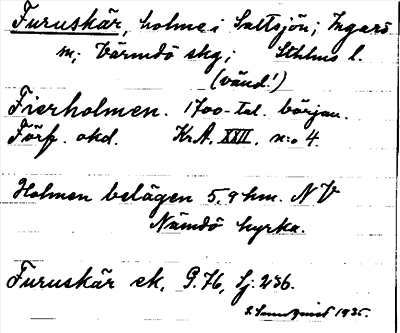 Furuskär, holme i Saltsjön; Ingarö
sn; Värmdö skg; Sthlms l.
(vänd!)
Fierholmen. 1700-tal. början.
Förf. okd. KrA. XXII. n:o 4.
Holmen belägen 5,9 km. NV
Nämdö kyrka.
Furuskär ek. 9.76, Lj. 236.
1935.